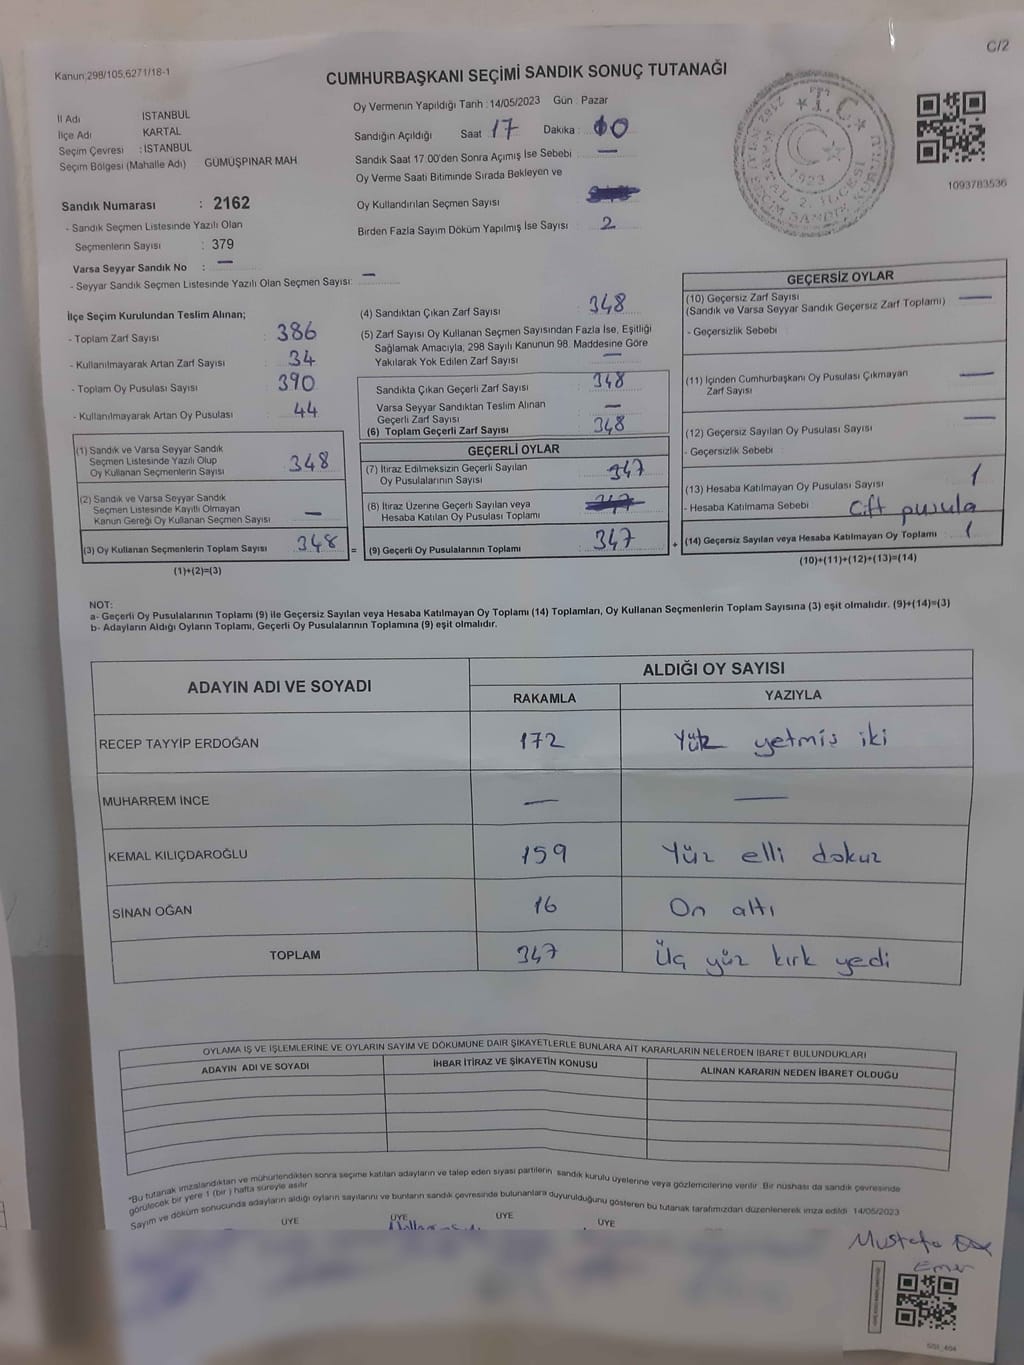 C/2
Kanun:298/105,6271/18-1
CUMHURBAŞKANI SEÇİMİ SANDIK SONUÇ TUTANAĞI
İl Adı İSTANBUL
İlçe Adı KARTAL
Seçim Çevresi : İSTANBUL
Seçim Bölgesi (Mahalle Adı) GÜMÜŞPINAR MAH
Sandık Numarası : 2162
- Sandık Seçmen Listesinde Yazılı Olan
Seçmenlerin Sayısı : 379
Varsa Seyyar Sandık No : —
- Seyyar Sandık Seçmen Listesinde Yazılı Olan Seçmen Sayısı: —
Oy Vermenin Yapıldığı Tarih : 14/05/2023 Gün : Pazar
Sandığın Açıldığı Saat 17 Dakika : 00
Sandık Saat 17:00'den Sonra Açımış İse Sebebi —
Oy Verme Saati Bitiminde Sırada Bekleyen ve
Oy Kullandırılan Seçmen Sayısı
Birden Fazla Sayım Döküm Yapılmış İse Sayısı : 2
T.C.
1923
1093783536
İlçe Seçim Kurulundan Teslim Alınan;
- Toplam Zarf Sayısı : 386
- Kullanılmayarak Artan Zarf Sayısı : 34
- Toplam Oy Pusulası Sayısı : 390
- Kullanılmayarak Artan Oy Pusulası : 44
(1) Sandık ve Varsa Seyyar Sandık
Seçmen Listesinde Yazılı Olup
Oy Kullanan Seçmenlerin Sayısı : 348
(2) Sandık ve Varsa Seyyar Sandık
Seçmen Listesinde Kayıtlı Olmayan
Kanun Gereği Oy Kullanan Seçmen Sayısı : —
(3) Oy Kullanan Seçmenlerin Toplam Sayısı : 348 =
(1)+(2)=(3)
(4) Sandıktan Çıkan Zarf Sayısı : 348
(5) Zarf Sayısı Oy Kullanan Seçmen Sayısından Fazla İse, Eşitliği
Sağlamak Amacıyla, 298 Sayılı Kanunun 98. Maddesine Göre
Yakılarak Yok Edilen Zarf Sayısı : —
Sandıkta Çıkan Geçerli Zarf Sayısı : 348
Varsa Seyyar Sandıktan Teslim Alınan
Geçerli Zarf Sayısı : —
(6) Toplam Geçerli Zarf Sayısı : 348
GEÇERLİ OYLAR
(7) İtiraz Edilmeksizin Geçerli Sayılan
Oy Pusulalarının Sayısı : 347
(8) İtiraz Üzerine Geçerli Sayılan veya
Hesaba Katılan Oy Pusulası Toplamı : 347
(9) Geçerli Oy Pusulalarının Toplamı : 347 +
GEÇERSİZ OYLAR
(10) Geçersiz Zarf Sayısı
(Sandık ve Varsa Seyyar Sandık Geçersiz Zarf Toplamı) —
- Geçersizlik Sebebi :
(11) İçinden Cumhurbaşkanı Oy Pusulası Çıkmayan
Zarf Sayısı —
(12) Geçersiz Sayılan Oy Pusulası Sayısı —
- Geçersizlik Sebebi :
(13) Hesaba Katılmayan Oy Pusulası Sayısı : 1
- Hesaba Katılmama Sebebi : Çift pusula
(14) Geçersiz Sayılan veya Hesaba Katılmayan Oy Toplamı : 1
(10)+(11)+(12)+(13)=(14)
NOT:
a- Geçerli Oy Pusulalarının Toplamı (9) ile Geçersiz Sayılan veya Hesaba Katılmayan Oy Toplamı (14) Toplamları, Oy Kullanan Seçmenlerin Toplam Sayısına (3) eşit olmalıdır. (9)+(14)=(3)
b- Adayların Aldığı Oyların Toplamı, Geçerli Oy Pusulalarının Toplamına (9) eşit olmalıdır.
ADAYIN ADI VE SOYADI ALDIĞI OY SAYISI
RAKAMLA YAZIYLA
RECEP TAYYİP ERDOĞAN 172 Yüz yetmiş iki
MUHARREM İNCE — —
KEMAL KILIÇDAROĞLU 159 Yüz elli dokuz
SİNAN OĞAN 16 On altı
TOPLAM 347 Üç yüz kırk yedi
OYLAMA İŞ VE İŞLEMLERİNE VE OYLARIN SAYIM VE DÖKÜMÜNE DAİR ŞİKAYETLERLE BUNLARA AİT KARARLARIN NELERDEN İBARET BULUNDUKLARI
ADAYIN ADI VE SOYADI İHBAR İTİRAZ VE ŞİKAYETİN KONUSU ALINAN KARARIN NEDEN İBARET OLDUĞU
*Bu tutanak imzalandıktan ve mühürlendikten sonra seçime katılan adayların ve talep eden siyasi partilerin sandık kurulu üyelerine veya gözlemcilerine verilir. Bir nüshası da sandık çevresinde
görülecek bir yere 1 (bir) hafta süreyle asılır
Sayım ve döküm sonucunda adayların aldığı oyların sayılarını ve bunların sandık çevresinde bulunanlara duyurulduğunu gösteren bu tutanak tarafımızdan düzenlenerek imza edildi 14/05/2023
ÜYE ÜYE ÜYE ÜYE
Mustafa
Emer